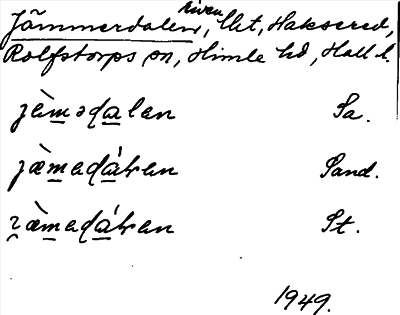 Jämmerdalen, liten lht, Haksered,
Rolfstorps sn, Himle hd, Hall l.
jèmədalen Sa.
jæ̀medáƚen Sand.
ʒæ̀medáƚen St.
1949.